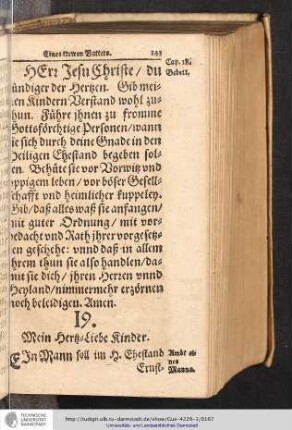 Eines trewen Vatters. 145
HErr Jesu Christe / du Cap. 18.
ündiger der Hertzen. Gib mei- Gebett.
en Kindern Verstand wohl zu-
hun. Führe jhnen zu fromme
Gottsförchtige Personen / wann
ie sich durch deine Gnade in den
Heiligen Ehestand begeben sol-
en. Behüte sie vor Vorwitz vnd
ppigem leben / vor böser Gesell-
schafft vnd heimlicher kuppeley.
Gib / daß alles waß sie anfangen /
mit guter Ordnung / mit vor-
bedacht vnd Rath jhrer vorgesetz-
en geschehe: vnnd daß in allem
hrem thun sie also handlen / da-
mit sie dich / jhren Herren vnnd
Heyland / nimmermehr erzörnen
noch beleidigen. Amen.
19.
Mein Hertz-Liebe Kinder.
EJn Mann soll im H. Ehestand Ambt ei-
nes
Ernst- Manns.
TECHNISCHE
UNIVERSITÄT
DARMSTADT
Universitäts- und Landesbibliothek Darmstadt